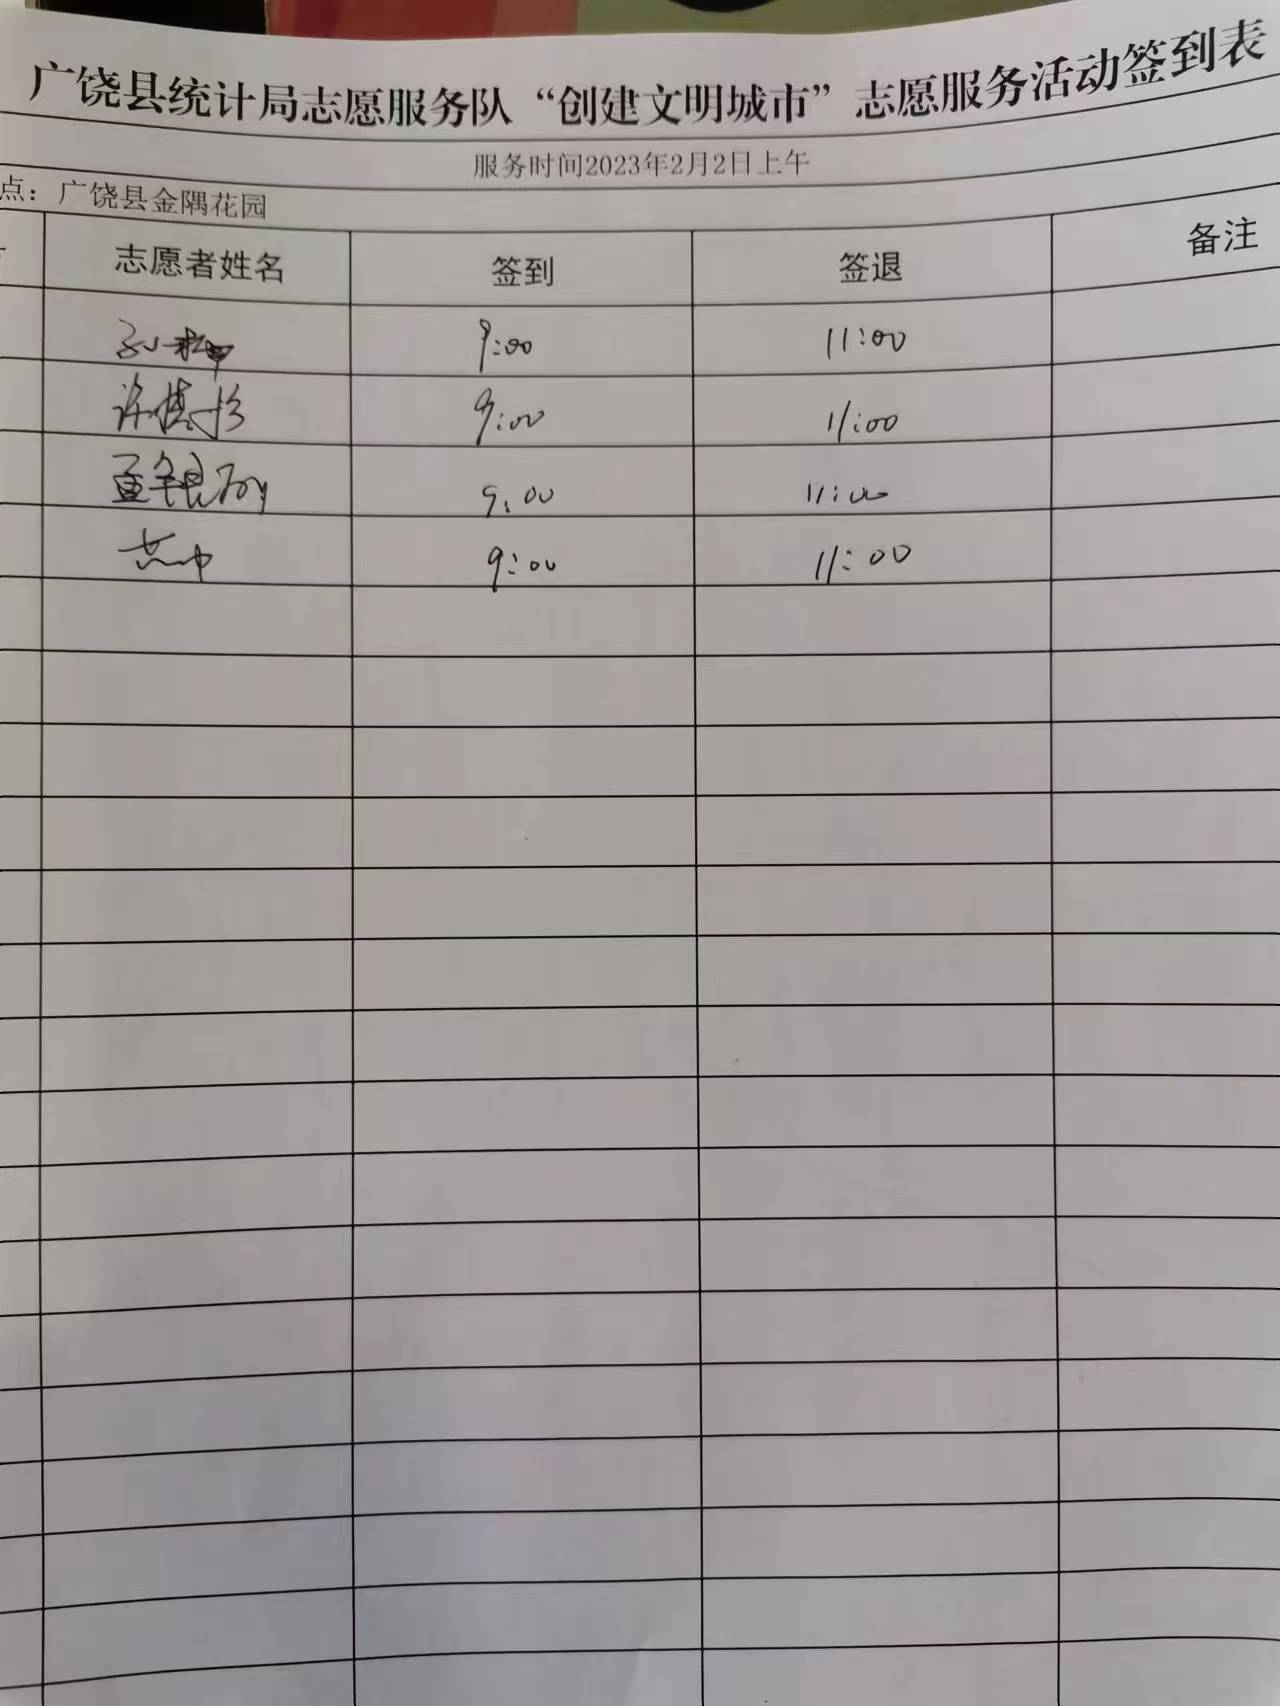 广饶县统计局志愿服务队“创建文明城市”志愿服务活动签到表
服务时间2023年2月2日上午
点：广饶县金隅花园
志愿者姓名 签到 签退 备注
9:00 11:00
许 9:00 11:00
孟银 9:00 11:00
9:00 11:00